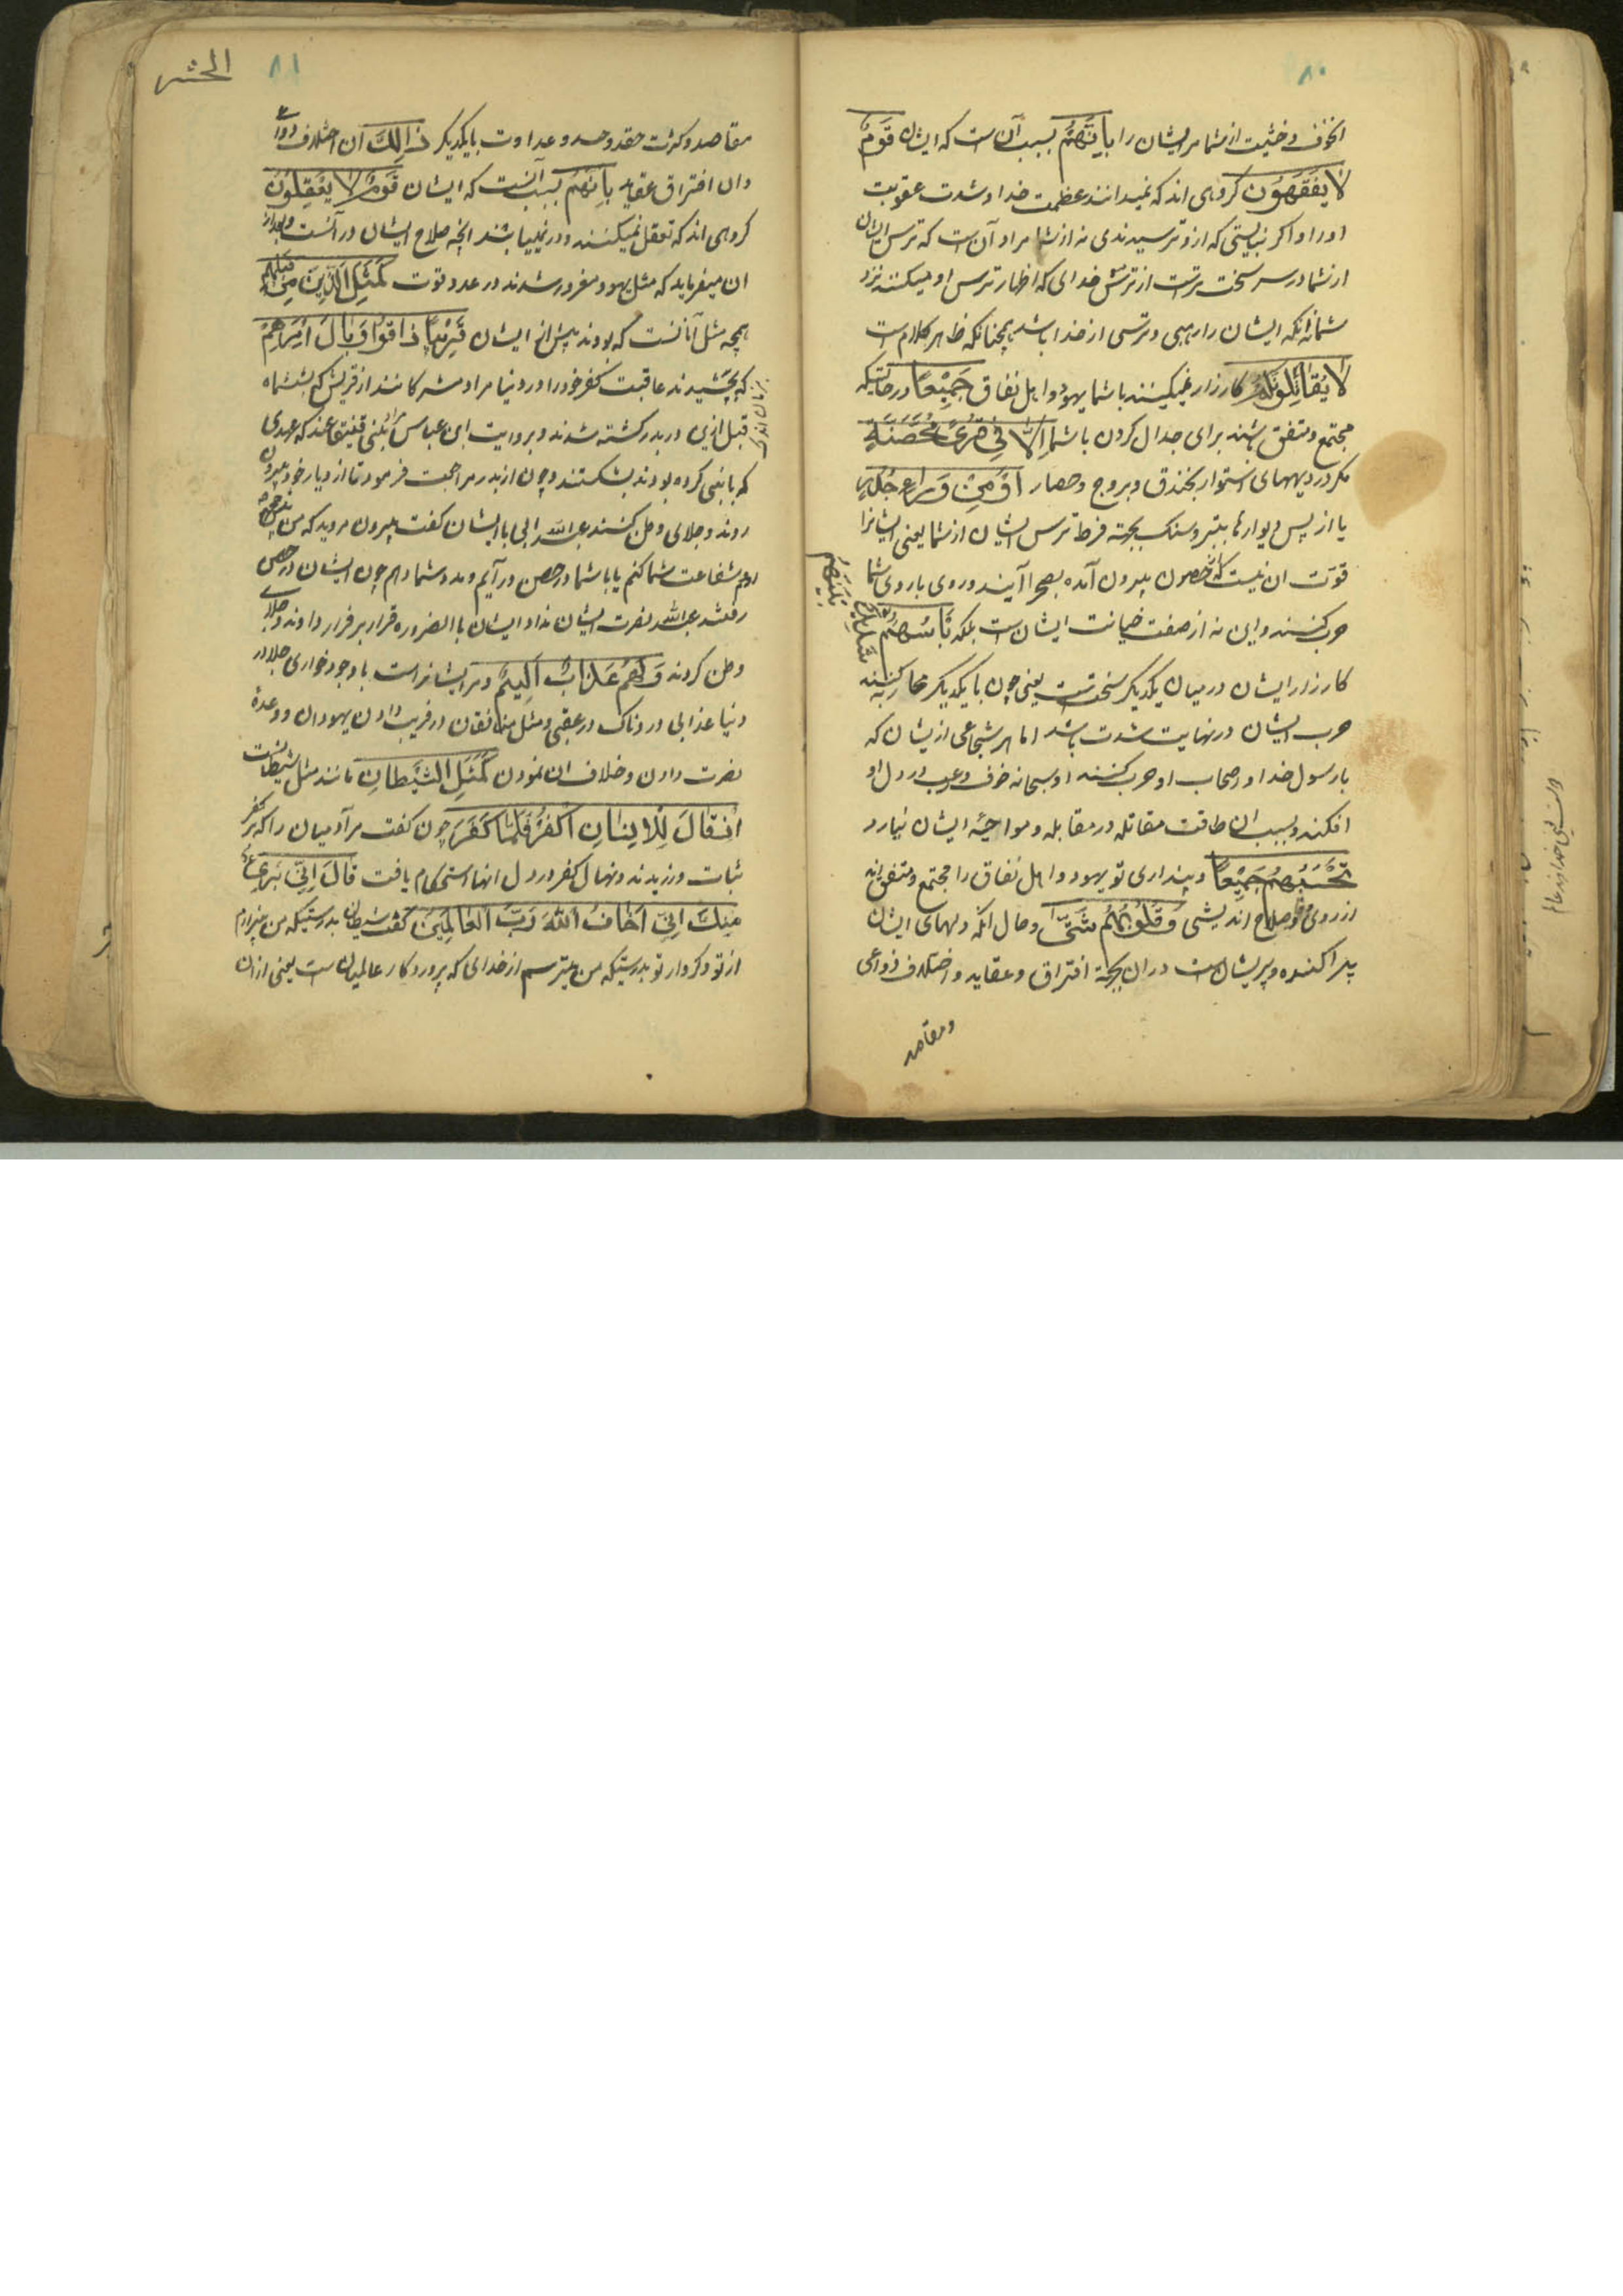 ۸۰
انخوف و خشیت از شما مر ایشان را بِاَنَّهُمْ بسبب آن است که ایشان قَوْمٌ
لا یَفْقَهُونَ گروهی اند که نمیدانند عظمت خدا و شدت عقوبت
او را و اگر نبایستی که ازو ترسیدندی نه از شما مراد آن است که ترس ایشان
از شما در سر سخت تر است از ترس خدای که اظهار ترس او میکنند نزد
شما نه آنکه ایشان را رهبی و ترسی از خدا باشد چنانکه ظاهر کلام است
لا یُقاتِلُونَکُمْ کارزار نمیکنند با شما یهود و اهل نفاق جَمِیْعًا در حالتیکه
مجتمع و متفق باشند برای جدال کردن با شما اِلّا فِی قُرًی مُحَصَّنَةٍ
مگر در دیههای استوار بخندق و بروج و حصار اَوْ مِنْ وَراءِ جُدُرٍ
یا از پس دیوارها بتیر و سنک بجهة فرط ترس ایشان از شما یعنی ایشانرا
قوت ان نیست که از حصون بیرون آمده بصحرا آیند و روی با روی شما
حرب کنند و این نه از صفت خیانت ایشان است بلکه بَأسُهُمْ
بَیْنَهُمْ شَدِیدٌ
کارزار ایشان در میان یکدیگر سخت است یعنی چون با یکدیگر محاربه کنند
حرب ایشان در نهایت شدت باشد اما هر شجاعی ازیشان که
با رسول خدا و اصحاب او حرب کنند او سبحانه خوف و رعب در دل او
افکند و بسبب ان طاقت مقاتله در مقابله و مواجهٔ ایشان نیارد
تَحْسَبُهُمْ جَمِیْعًا و پنداری تو یهود و اهل نفاق را مجتمع و متفق اند
از روی صلاح اندیشی وَ قُلُوبُهُمْ شَتّی و حال آنکه دلهای ایشان
پراکنده و پریشان است دران بجهة افتراق و عقاید و اختلاف دواعی
و مقاصد
الحشر
۸۱
مقاصد و کثرت حقد و حسد و عداوت با یکدیگر ذالِكَ ان اختلاف دواعی
وان افتراق عقاید بِاَنَّهُمْ بسبب آنست که ایشان قَوْمٌ لا یَعْقِلُوْنَ
گروهی اند که تعقل نمیکنند و در نمییابند انچه صلاح ایشان در آنست و بعد از
ان میفرماید که مثل یهود مغرور شدند در عدد و قوت کَمَثَلِ الَّذِینَ مِنْ قَبْلِهِمْ
همچه مثل آنانست که بودند پیش از ایشان قَرِیْبًا ذاقُوْا وَبالَ اَمْرِهِمْ
که بچشیدند عاقبت کفر خود را در دنیا مراد مشرکانند از قریش که بششماه
قبل ازین در بدر کشته شدند و بروایت ابن عباس بنی قینقاعند که عهدی
که با نبی کرده بودند بشکستند و چون از بدر مراجعت فرمود تا از دیار خود بیرون
روند و جلای وطن کنند عبدالله ابی با ایشان گفت بیرون مروید که من
روم شفاعت شما کنم یا با شما در حصن در آیم و مدد شما دهم چون ایشان در حصن
رفتند عبدالله نصرت ایشان نداد ایشان بالضروره قرار بر فرار دادند و جلای
وطن کردند وَ لَهُمْ عَذابٌ اَلِیمٌ و مر ایشانراست با وجود خواری جلا در
دنیا عذابی دردناک در عقبی و مثل منافقان در فریب دادن یهودان و وعدهٔ
نصرت دادن و خلاف ان نمودن کَمَثَلِ الشَّیْطانِ مانند مثل شیطانست
اِذْ قالَ لِلْاِنْسانِ اکْفُرْ فَلَمّا کَفَرَ چون گفت مر آدمیان را که بر کفر
ثبات ورزیدند و نهال کفر در دل انها استحکام یافت قالَ اِنِّی بَرِیءٌ
مِنْكَ اِنِّی اَخافُ اللهَ رَبَّ الْعالَمِیْنَ گفت شیطان بدرستیکه من بیزارم
از تو و کردار تو بدرستیکه من میترسم از خدای که پروردگار عالمیان است یعنی ازان